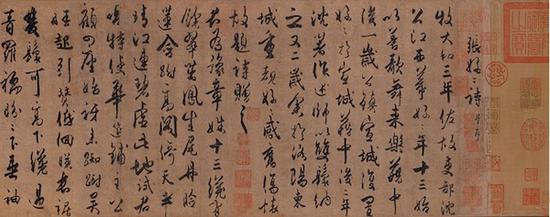 張好好詩 并序
牧大和三年佐故吏部沈
公江西幕好好年十三始
以善歌舞來樂籍中
後一歲公鎮宣城復置
好好於宣城籍中後二年
沈著作述師以雙鬟納
之又二歲余於洛陽東
城重睹好好感舊傷懷
故題詩贈之
君為豫章姝十三纔有
餘翠茁鳳生尾丹臉
蓮含跗高閣倚天半
晴江連碧虛此地試君
唱特使華筵鋪主公
顧四座始訝來踟躕吳
娃起引贊低佪映長裾
雙鬟可高下纔過
青羅襦盼盼下垂袖